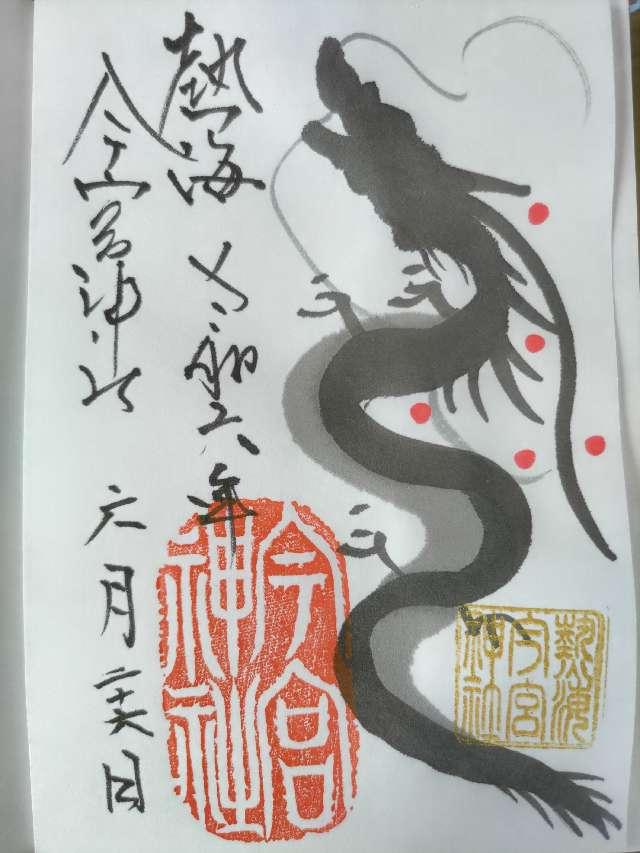 熱海 令和六年
今宮神社 六月二十六日
今宮神社
熱海今宮神社